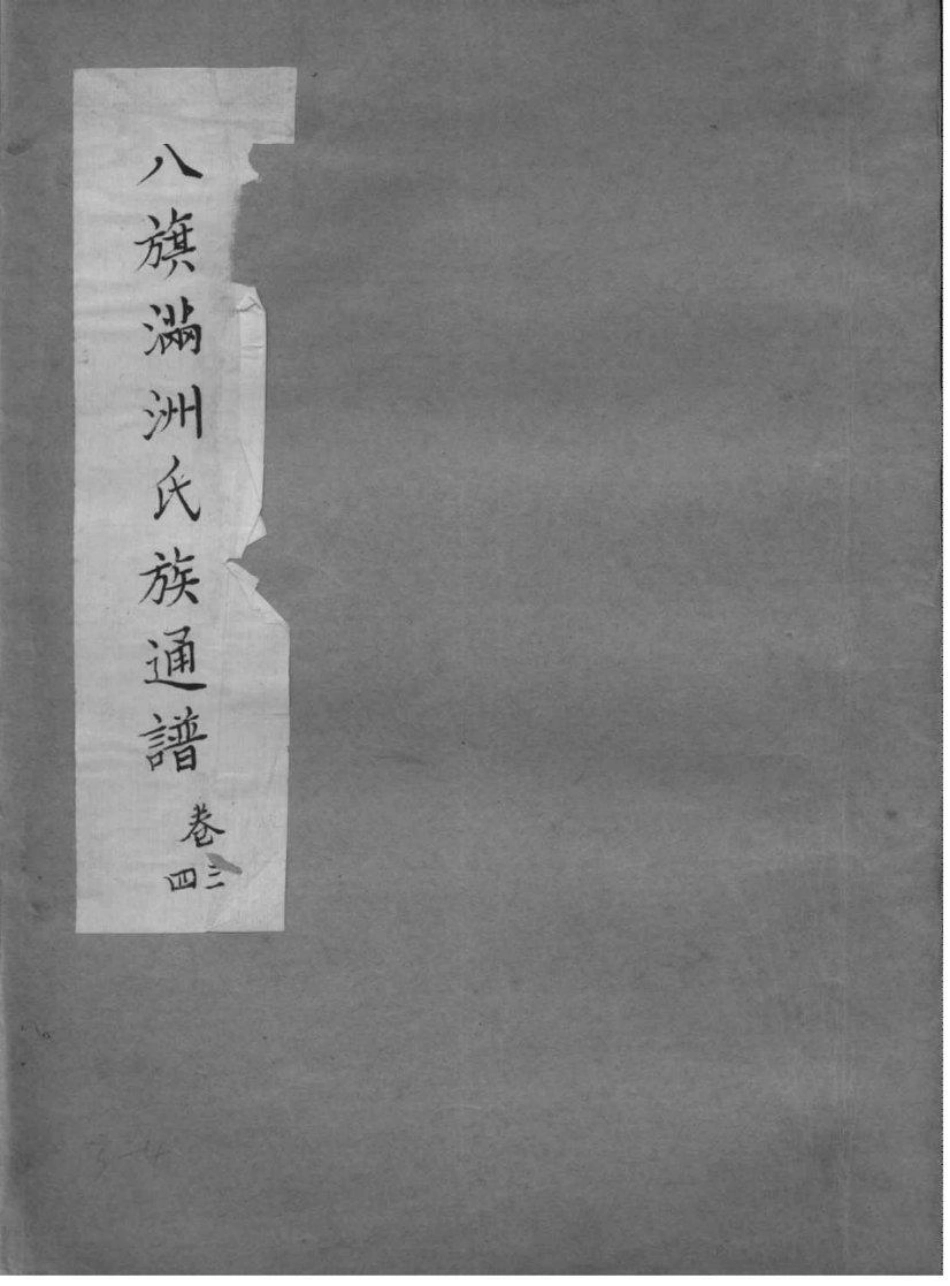 八旗滿洲氏族通譜
卷三四